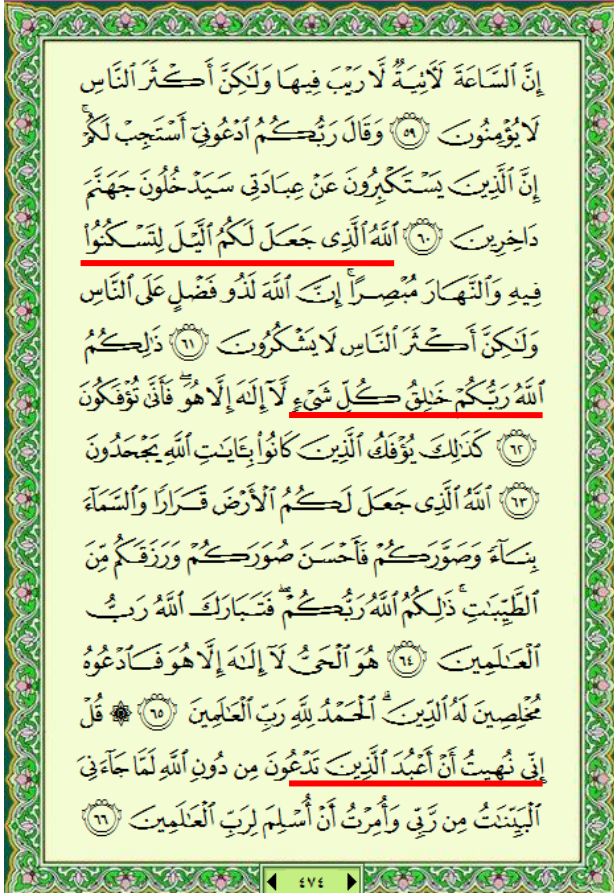 إِنَّ ٱلسَّاعَةَ لَأٓتِيَةٌ لَّا رَيۡبَ فِيهَا وَلَٰكِنَّ أَكۡثَرَ ٱلنَّاسِ
لَا يُؤۡمِنُونَ ٥٩ وَقَالَ رَبُّكُمُ ٱدۡعُونِيٓ أَسۡتَجِبۡ لَكُمۡۚ
إِنَّ ٱلَّذِينَ يَسۡتَكۡبِرُونَ عَنۡ عِبَادَتِي سَيَدۡخُلُونَ جَهَنَّمَ
دَاخِرِينَ ٦٠ ٱللَّهُ ٱلَّذِي جَعَلَ لَكُمُ ٱلَّيۡلَ لِتَسۡكُنُواْ
فِيهِ وَٱلنَّهَارَ مُبۡصِرًاۚ إِنَّ ٱللَّهَ لَذُو فَضۡلٍ عَلَى ٱلنَّاسِ
وَلَٰكِنَّ أَكۡثَرَ ٱلنَّاسِ لَا يَشۡكُرُونَ ٦١ ذَٰلِكُمُ
ٱللَّهُ رَبُّكُمۡ خَٰلِقُ كُلِّ شَيۡءٖ لَّآ إِلَٰهَ إِلَّا هُوَۖ فَأَنَّىٰ تُؤۡفَكُونَ
٦٢ كَذَٰلِكَ يُؤۡفَكُ ٱلَّذِينَ كَانُواْ بِـَٔايَٰتِ ٱللَّهِ يَجۡحَدُونَ
٦٣ ٱللَّهُ ٱلَّذِي جَعَلَ لَكُمُ ٱلۡأَرۡضَ قَرَارٗا وَٱلسَّمَآءَ
بِنَآءٗ وَصَوَّرَكُمۡ فَأَحۡسَنَ صُوَرَكُمۡ وَرَزَقَكُم مِّنَ
ٱلطَّيِّبَٰتِۚ ذَٰلِكُمُ ٱللَّهُ رَبُّكُمۡۖ فَتَبَارَكَ ٱللَّهُ رَبُّ
ٱلۡعَٰلَمِينَ ٦٤ هُوَ ٱلۡحَيُّ لَآ إِلَٰهَ إِلَّا هُوَ فَٱدۡعُوهُ
مُخۡلِصِينَ لَهُ ٱلدِّينَۗ ٱلۡحَمۡدُ لِلَّهِ رَبِّ ٱلۡعَٰلَمِينَ ٦٥ ۞ قُلۡ
إِنِّي نُهِيتُ أَنۡ أَعۡبُدَ ٱلَّذِينَ تَدۡعُونَ مِن دُونِ ٱللَّهِ لَمَّا جَآءَنِيَ
ٱلۡبَيِّنَٰتُ مِن رَّبِّي وَأُمِرۡتُ أَنۡ أُسۡلِمَ لِرَبِّ ٱلۡعَٰلَمِينَ ٦٦
٤٧٤